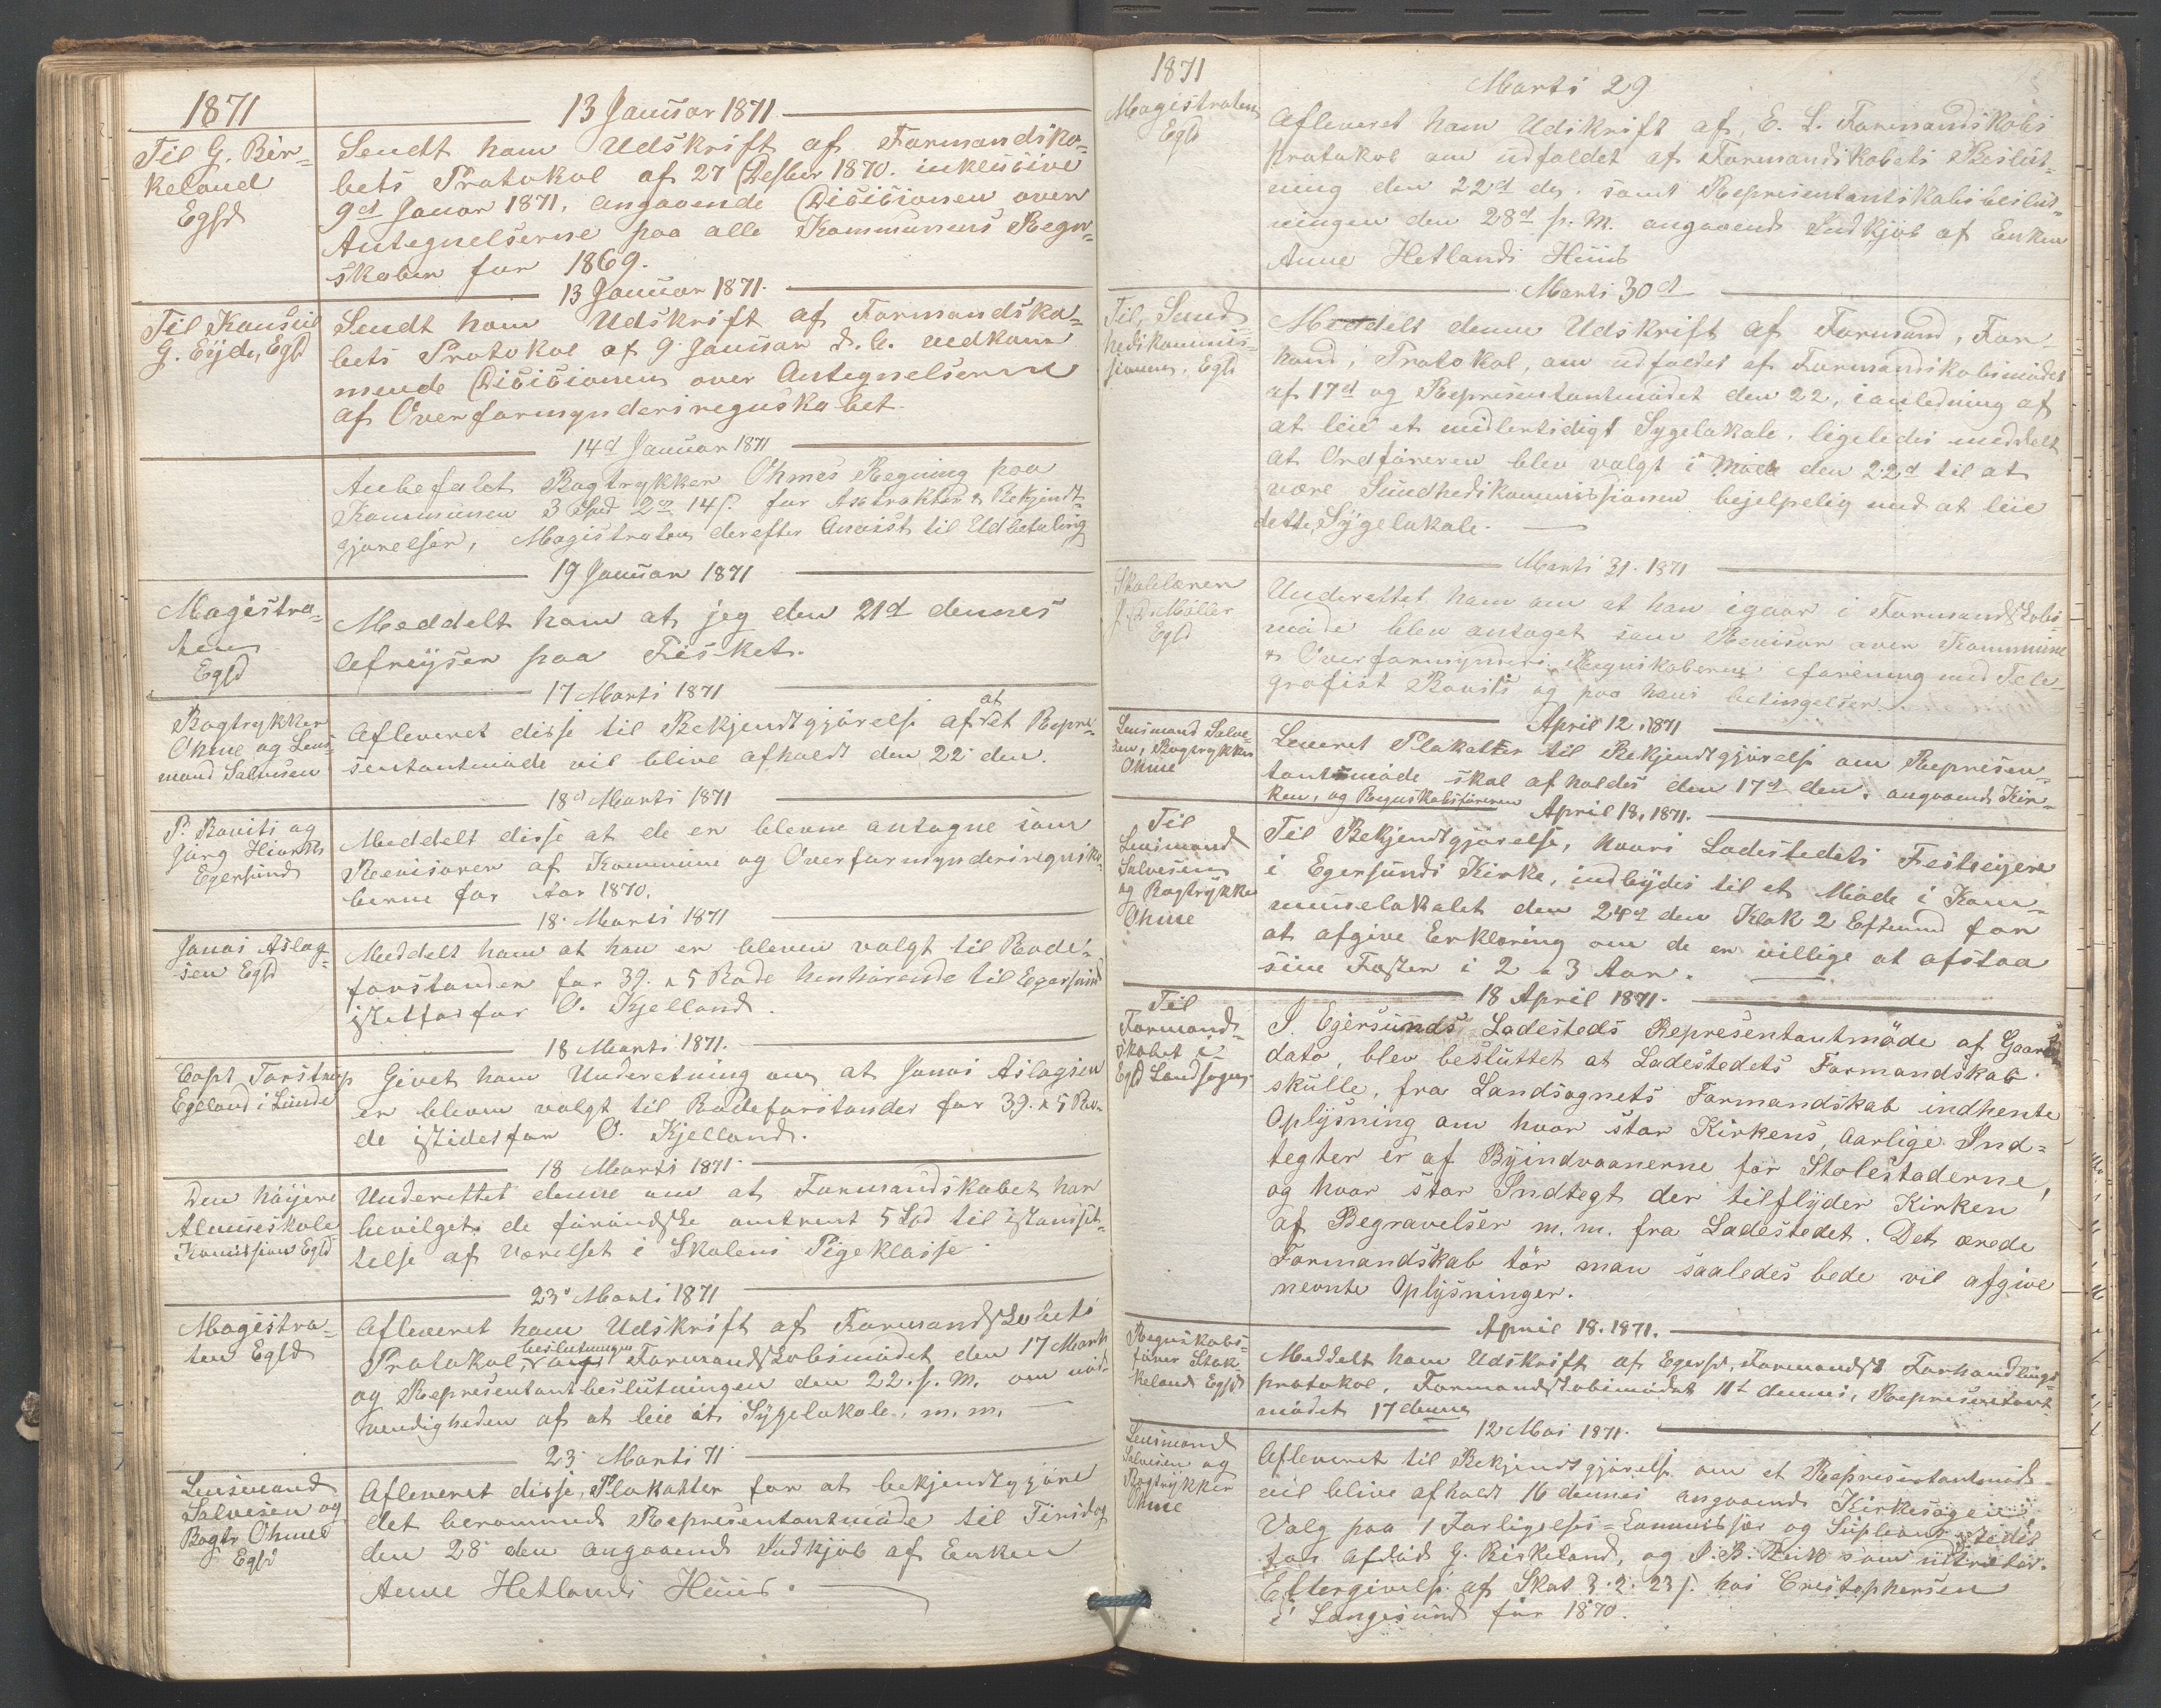 1871
13 Januar 1871
Til G. Bir-
keland
Egsd
Sendt ham Udskrift af Formandska-
bets Protokol af 27 Desber 1870. inklusive
9d Januar 1871, angaaende Disisionen over
Antegnelserne paa alle Kommunens Regn-
skaber for 1869.
13 Januar 1871.
Til Konsul
G. Eyde, Egsd
Sendt ham Udskrift af Formandska-
bets Protokol af 9 Januar d. A. vedkom-
mende Disisionen over Antegnelserne
af Overformynderiregnskabet.
14d Januar 1871
Anbefalet Bogtrykker Ohmes Regning paa
Kommunen 3 Spd 2 14 s. for Asstrakter & Bekjendt-
gjørelser, Magistraten derefter Anvist til Udbetaling
19 Januar 1871
Magistra-
ten
Egsd
Meddelt ham at jeg den 21d dennes
Afreyser paa Fisket.
17 Marts 1871
Bogtrykker
Ohme og Lens-
mand Salvesen
Afleveret disse til Bekjendtgjørelse af at det Repre-
sentantmøde vil blive afholdt den 22 den.
18d Marts 1871
P. Ravits og
Jørg Hiorth
Egersund
Meddelt disse at de er blevne antagne som
Revisorer af Kommune og Overformynderiregnska-
berne for Aar 1870.
18 Marts 1871
Jonas Aslag-
sen Egsd
Meddelt ham at han er bleven valgt til Rode-
forstander for 3. & 5 Rode henhørende til Egersund
istedfor for O. Kjelland.
18 Marts 1871.
Capt Torstrup
Egeland i Lunde
Givet ham Underetning om at Jonas Aslagsen
er bleven valgt til Rodeforstander for 3. & 5 Ro-
de istedet for O. Kjelland.
18 Marts 1871
Den høyere
Almueskole
Komission Egsd
Underettet denne om at Formandskabet har
bevilget de forønskte omtrent 5 Spd til istandsæt-
telse af Værelset i Skolens Pigeklasse.
23d Marts 1871
Magistra-
ten Egsd
Afleveret ham Udskrift af Formandskabets
Protokol, beslutningen Formandskabsmødet den 17 Marts
og Representantbeslutningen den 22. p. M. om nød-
vendigheden af at leie et Sygelokale. m. m.
23 Marts 71
Lensmand
Salvesen og
Bogtr Ohme
Egsd
Afleveret disse, Plakatter for at bekjendtgjøre
det berammed Representantmøde til Tirsdag
den 28 den angaaende Indkjøb af Enken
Anne Hetlands Huus.
1871
Marts 29
Magistraten
Egsd
Afleveret ham Udskrift af E. L. Formandskabs
protokol om udfaldet af Formandskabets Beslut-
ning den 22d ds. samt Representantskabsbeslut-
ningen den 28d p. M. angaaende Indkjøb af Enken
Anne Hetlands Huus
Marts 30d
Til Sund-
hedskommis-
sionen, Egsd
Meddelt denne Udskrift af Formand, For-
hand, Protokol, om udfaldet af Formandskabsmødet
af 17d og Representantmødet den 22, i anledning af
at leie et midlertidigt Sygelokale. ligeledes meddelt
at Ordføreren blev valgt i Møde den 22d til at
være Sundhedskommissionen hjelpelig med at leie
dette Sygelokale.
Marts 31. 1871
Skolelærer
Møller
Egsd
Underettet ham om at han igaar i Formandskabs-
møde blev antaget som Revisor over Kommune
& Overformynderi Regnskaberne i forening med Tele-
grafist Ravits og paa hans betingelser.
April 12, 1871
Lensmand Salve-
sen, Bogtrykker
Ohme
Leveret Plakatter til Bekjendtgjørelse om Represen-
tantsmøde skal afholdes den 17d den. angaaende Kir-
ken, og Regnskabsføreren
April 18, 1871.
Til
Lensmand
Salvesen
og Bogtrykker
Ohme
Til Bekjendtgjørelse, hvori Ladestedets Festeiyere
i Egersunds Kirke, indbydes til et Møde i Kom-
munelokalet den 24d den Klok 2 Eftermd for
at afgive Erklæring om de er villige at afstaa
sine Fæster i 2 a 3 Aar.
18 April 1871.
Til
Formand-
skabet i
Egsd Landsogn
I Egersunds Ladesteds Representantmøde af Gaars
dato, blev besluttet at Ladestedets Formandskab
skulle, fra Landsognets Formandskab indhente
Oplysning om hvor stor Kirkens, Aarlige Ind-
tegter er af Byindvaanerne for Stolestaderne,
og hvor stor Indtegt der tilflyder Kirken
af Begravelser m. m. fra Ladestedet. Det ærede
Formandskab tør man saaledes bede vil afgive
nevnte Oplysninger.
April 18. 1871.
Regnskabs-
fører Stok-
keland Egsd
Meddelt ham Udskrift af Egersd, Formandsk Forhandlings-
protokol, Formandskabsmødet 11t dennes, Representant-
mødet 17 dennes
12 Mai 1871.
Lensmand
Salvesen og
Bogtrykker
Ohme
Afleveret til Bekjendtgjørelse om et Representantmøde
vil blive afholdt 16 dennes angaaende Kirkesagen
Valg paa 1 Forligelses-Commissær og Supleant istedet
for afdød G. Birkeland, og som udtræder.
Eftergivelse af Skat 3. 2. 23 s. hos Crestophersen
i Langesund for 1870.